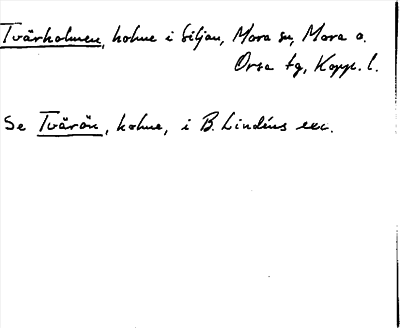 Tvärholmen, holme i Siljan, Mora sn, Mora o.
Orsa tg, Kopp. l.
Se Tvärön, holme, i B. Lindéns exc.